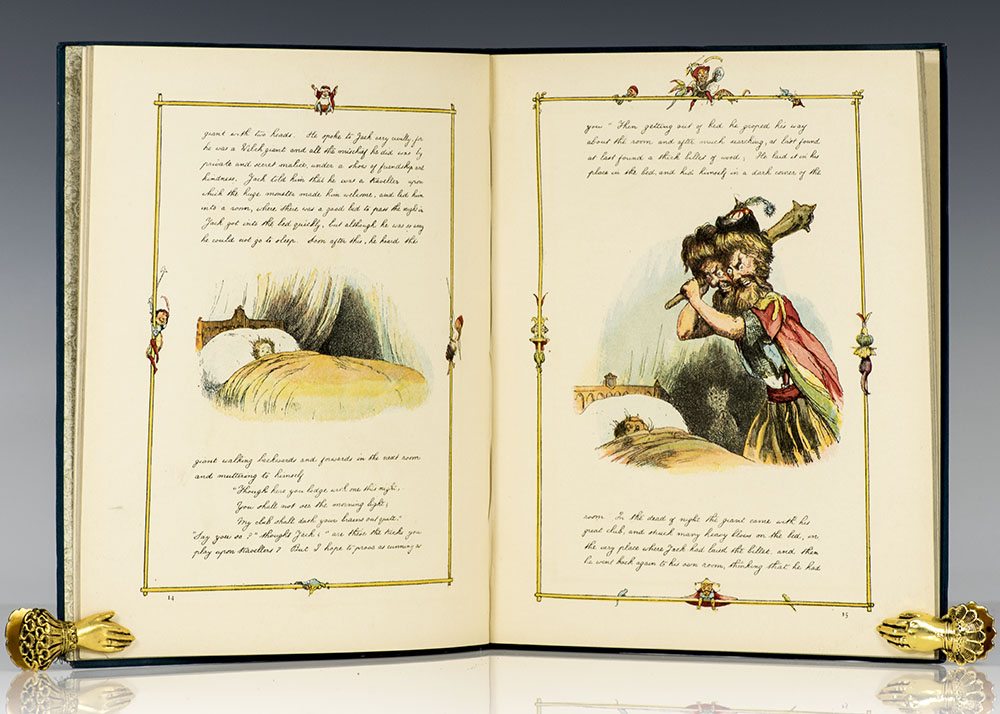 giant with two heads. He spoke to Jack very civilly for
he was a Welch giant and all the mischief he did was by
private and secret malice, under a show of friendship and
kindness. Jack told him that he was a traveller upon
which the huge monster made him welcome, and led him
into a room, where there was a good bed to pass the night in
Jack got into the bed quickly, but although he was so weary
he could not go to sleep. Soon after this, he heard the
giant walking backwards and forwards in the next room
and muttering to himself
"Though here you lodge with me this night,
You shall not see the morning light;
My club shall dash your brains out quite."
"Say you so?" thought Jack; "are these the tricks you
play upon travellers? But I hope to prove as cunning as
14
you" Then getting out of bed he groped his way
about the room and after much searching, at last found
at last found a thick billet of wood; He laid it in his
place in the bed, and hid himself in a dark corner of the
room. In the dead of night the giant came with his
great club, and struck many heavy blows on the bed, in
the very place where Jack had laid the billet, and then
he went back again to his own room, thinking that he had
15